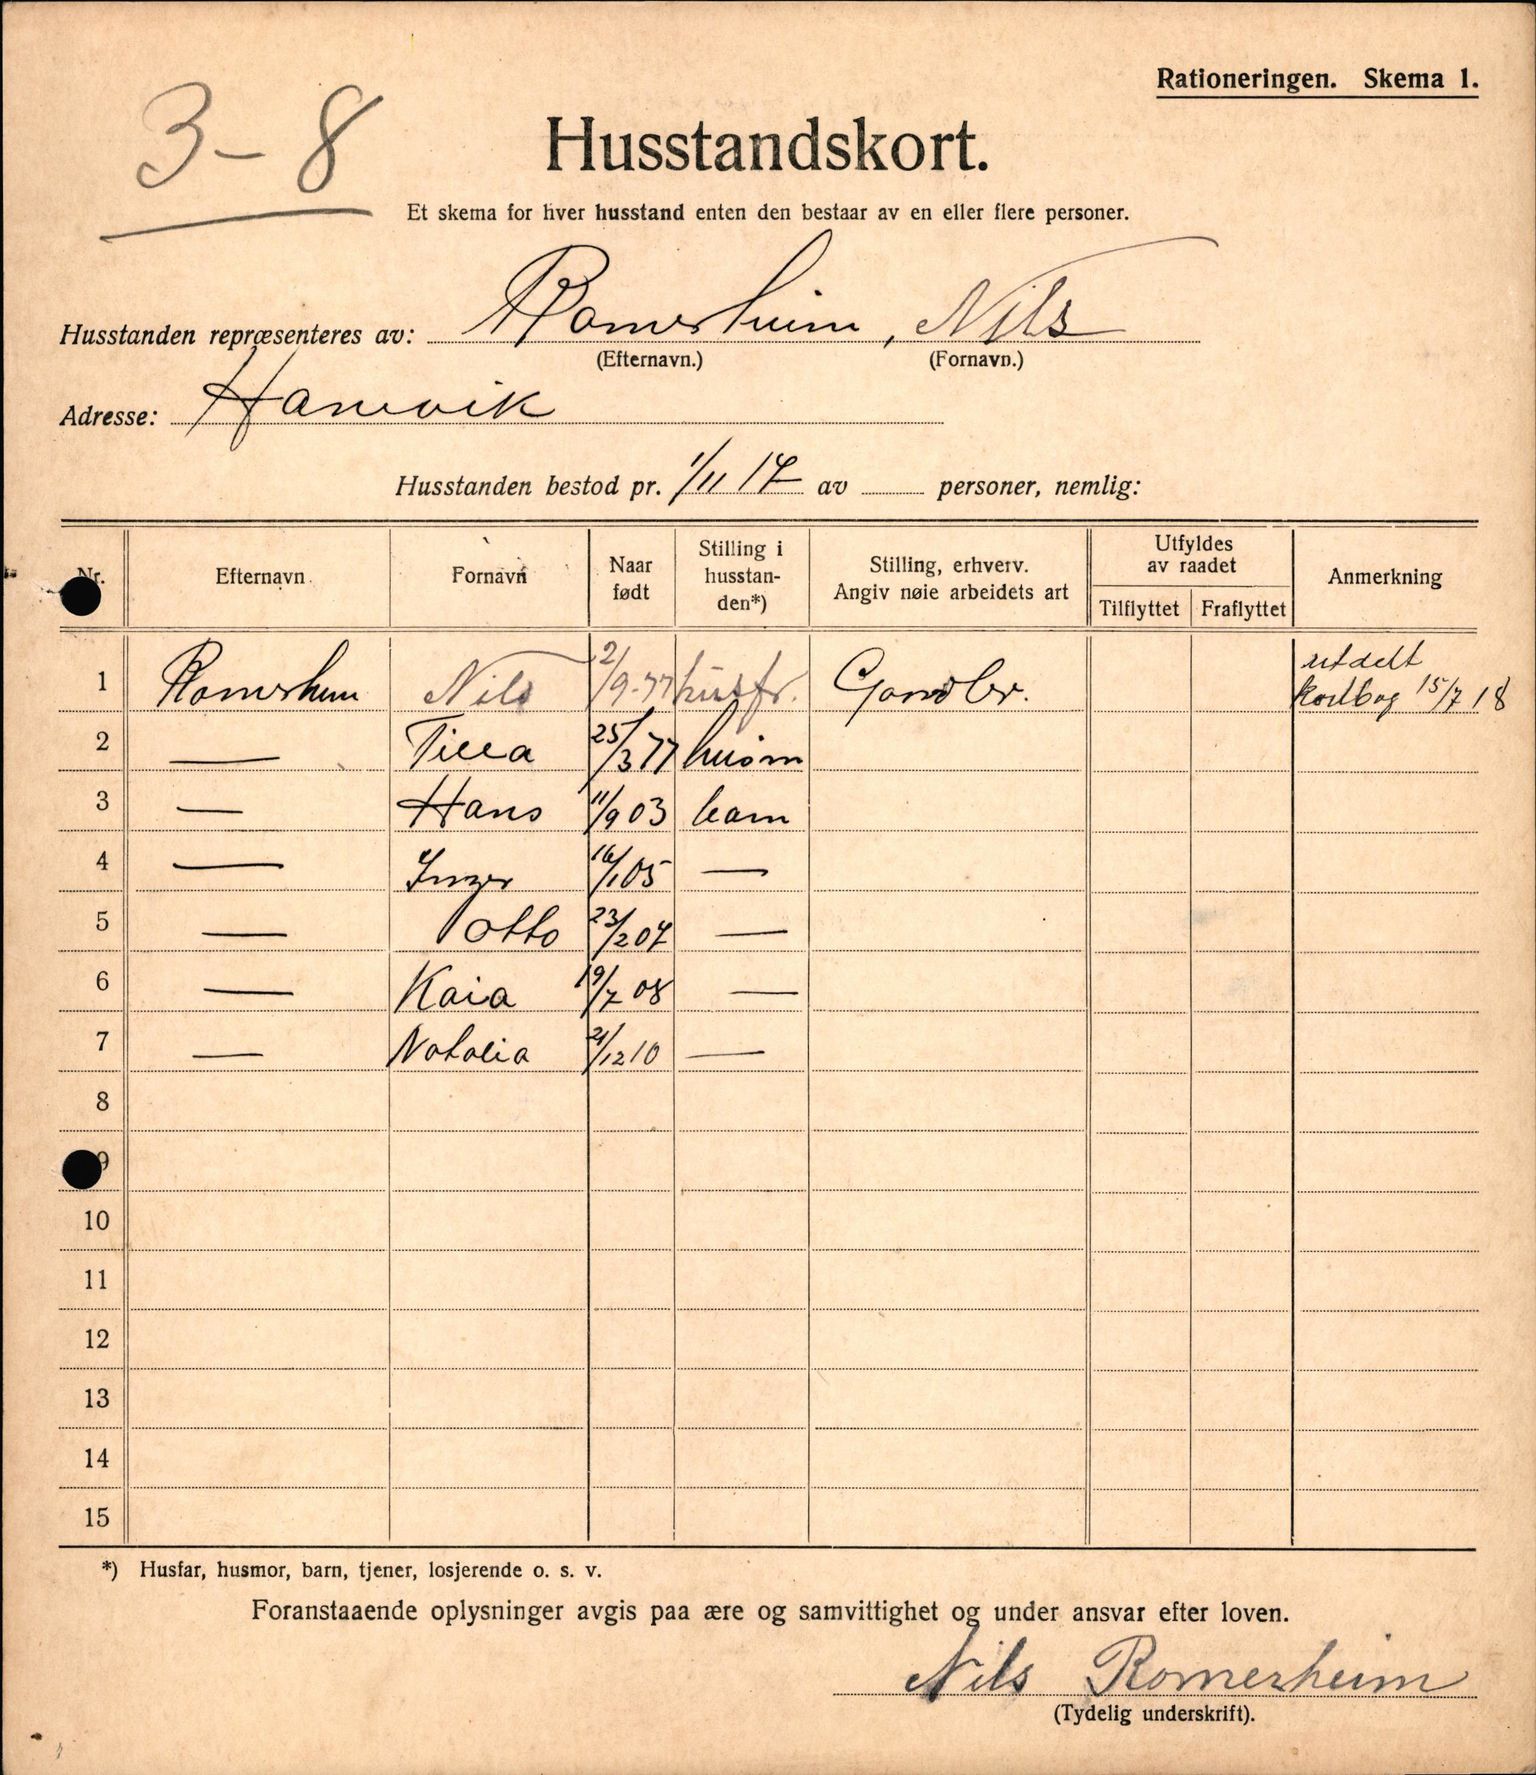 Rationeringen. Skema 1.
3 – 8
Husstandskort.
Et skema for hver husstand enten den bestaar av en eller flere personer.
Husstanden repræsenteres av: Romerheim, Nils
(Efternavn.) (Fornavn.)
Adresse:
Husstanden bestod pr. 1/11 17 av personer, nemlig:
Nr. Efternavn Fornavn Naar født Stilling i husstanden*) Stilling, erhverv. Angiv nøie arbeidets art Utfyldes av raadet Tilflyttet Fraflyttet Anmerkning
1 Romerheim Nils 2/9-77 husfr. utdelt kortbog 15/7 18
2 — Tilla 25/3 77 husm
3 — Hans 11/9 03 barn
4 — Inger 16/1 05 —
5 — Otto 23/2 07 —
6 — Kaia 19/7 08 —
7 — Natalia 21/12 10 —
8
9
10
11
12
13
14
15
*) Husfar, husmor, barn, tjener, losjerende o. s. v.
Foranstaaende oplysninger avgis paa ære og samvittighet og under ansvar efter loven.
Nils Romerheim
(Tydelig underskrift).